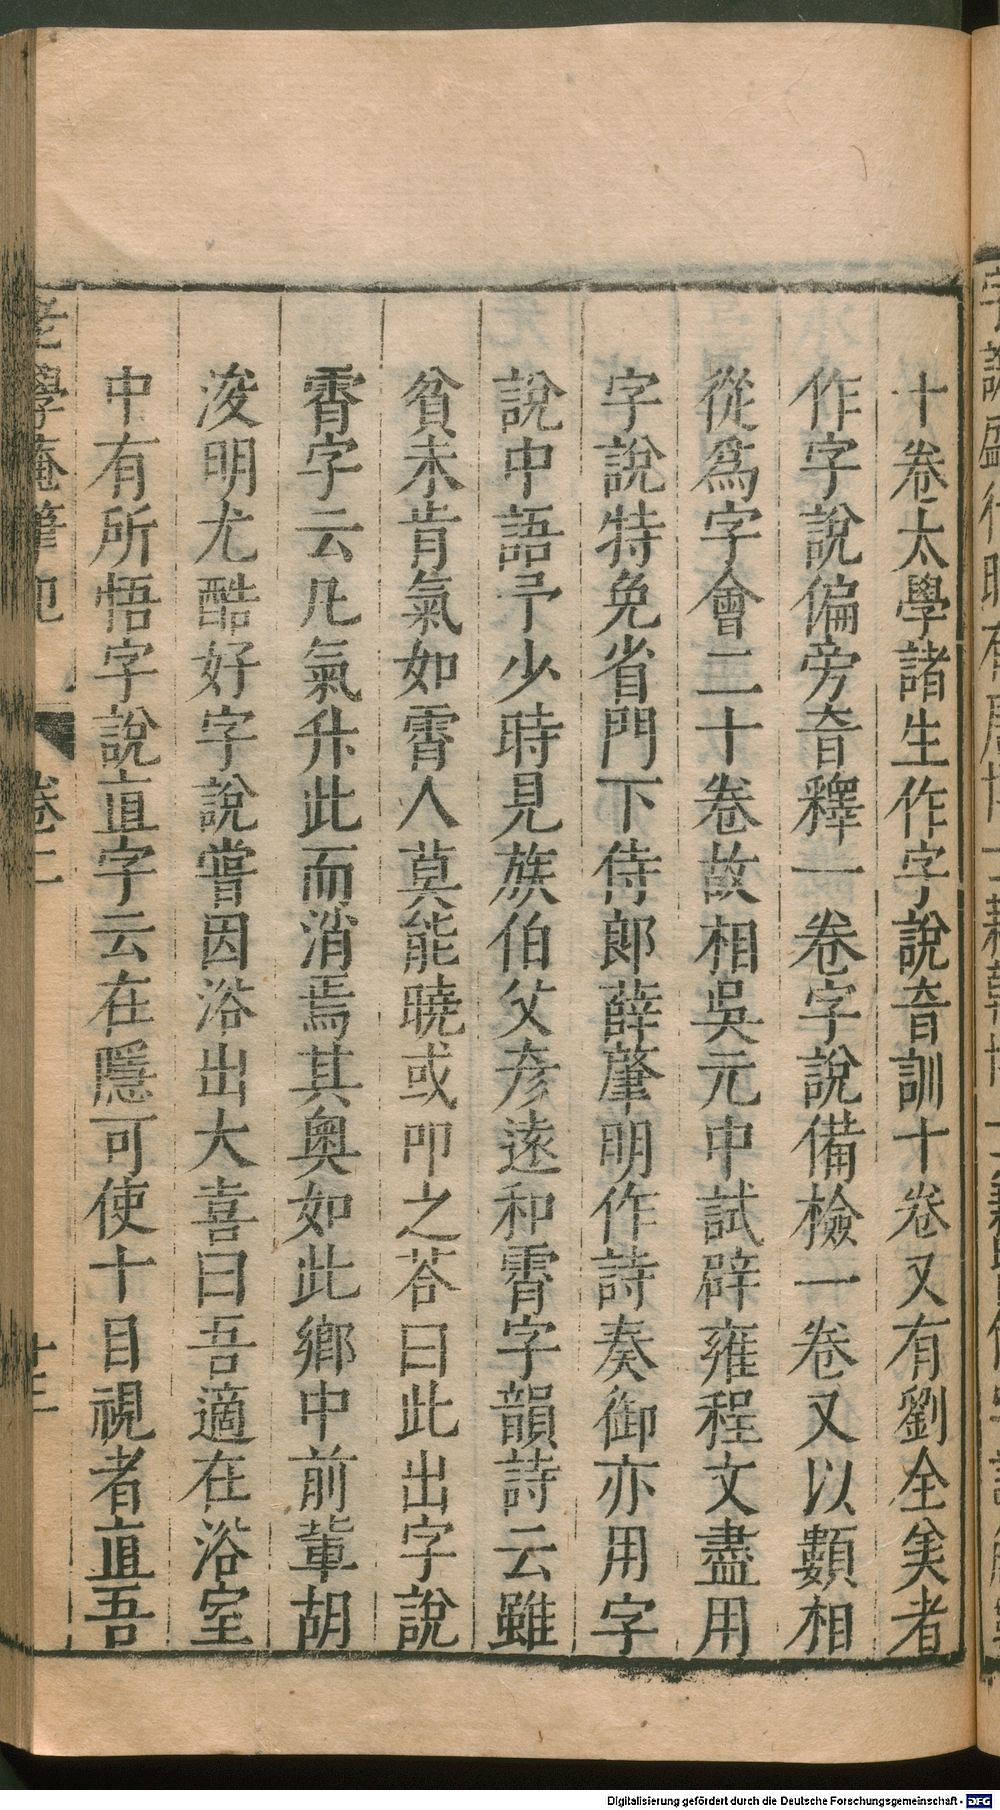 十卷太學諸生作字說音訓十卷又有劉全羙者
作字說偏旁音釋一卷字說備檢一卷又以類相
從爲字會二十卷故相吳元中試辟雍程文盡用
字說特免省門下侍郎薛肇明作詩奏御亦用字
說中語予少時見族伯父彥遠和霄字韻詩云雖
貧未肯氣如霄人莫能曉或叩之荅曰此出字說
霄字云凡氣升此而消焉其奧如此鄉中前輩胡
浚明尤酷好字說嘗因浴出大喜曰吾適在浴室
中有所悟字說直字云在隱可使十目視者直吾
老學庵筆記 卷二 十三
Digitalisierung gefördert durch die Deutsche Forschungsgemeinschaft - DFG